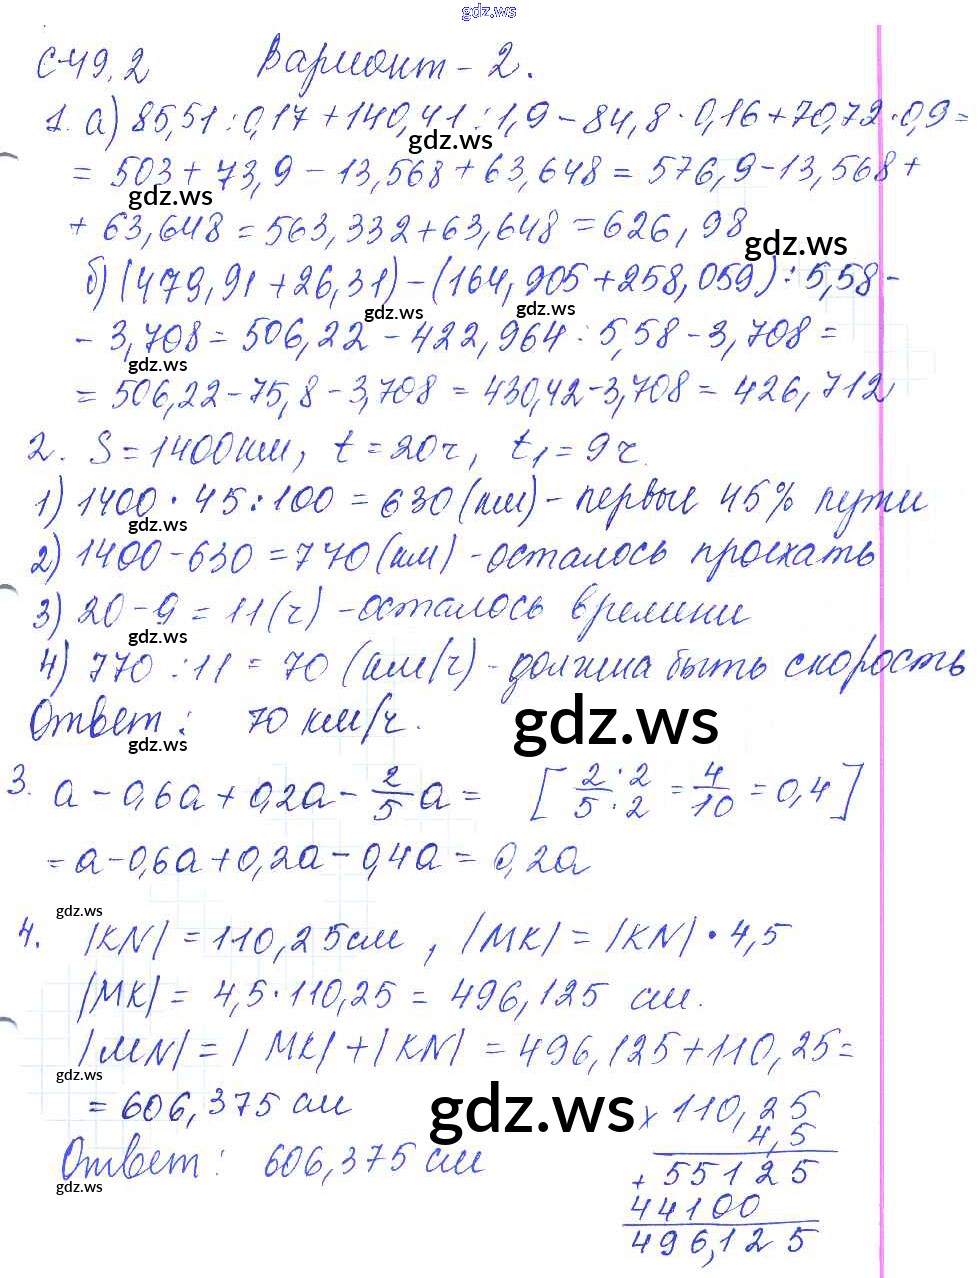 gdz.ws
С-49.2 Вариант - 2.
1. а) 85,51 : 0,17 + 140,41 : 1,9 - 84,8 · 0,16 + 70,72 · 0,9 =
gdz.ws
= 503 + 73,9 - 13,568 + 63,648 = 576,9 - 13,568 +
gdz.ws
+ 63,648 = 563,332 + 63,648 = 626,98
gdz.ws
б) (479,91 + 26,31) - (164,905 + 258,059) : 5,58 -
gdz.ws gdz.ws
- 3,708 = 506,22 - 422,964 : 5,58 - 3,708 =
gdz.ws
= 506,22 - 75,8 - 3,708 = 430,42 - 3,708 = 426,712
2. S = 1400 км, t = 20 ч, t₁ = 9 ч.
1) 1400 · 45 : 100 = 630 (км) - первые 45% пути
gdz.ws
2) 1400 - 630 = 770 (км) - осталось проехать
3) 20 - 9 = 11 (ч) - осталось времени
gdz.ws
4) 770 : 11 = 70 (км/ч) - должна быть скорость
Ответ: 70 км/ч.
gdz.ws
gdz.ws
3. a - 0,6a + 0,2a - 2/5 a = [2·2/5·2 = 4/10 = 0,4]
= a - 0,6a + 0,2a - 0,4a = 0,2a
gdz.ws
4. |KN| = 110,25 см, |MK| = |KN| · 4,5
|MK| = 4,5 · 110,25 = 496,125 см.
|MN| = |MK| + |KN| = 496,125 + 110,25 =
gdz.ws
= 606,375 см
gdz.ws
Ответ: 606,375 см
gdz.ws
× 110,25
4,5
+ 55125
44100
496,125